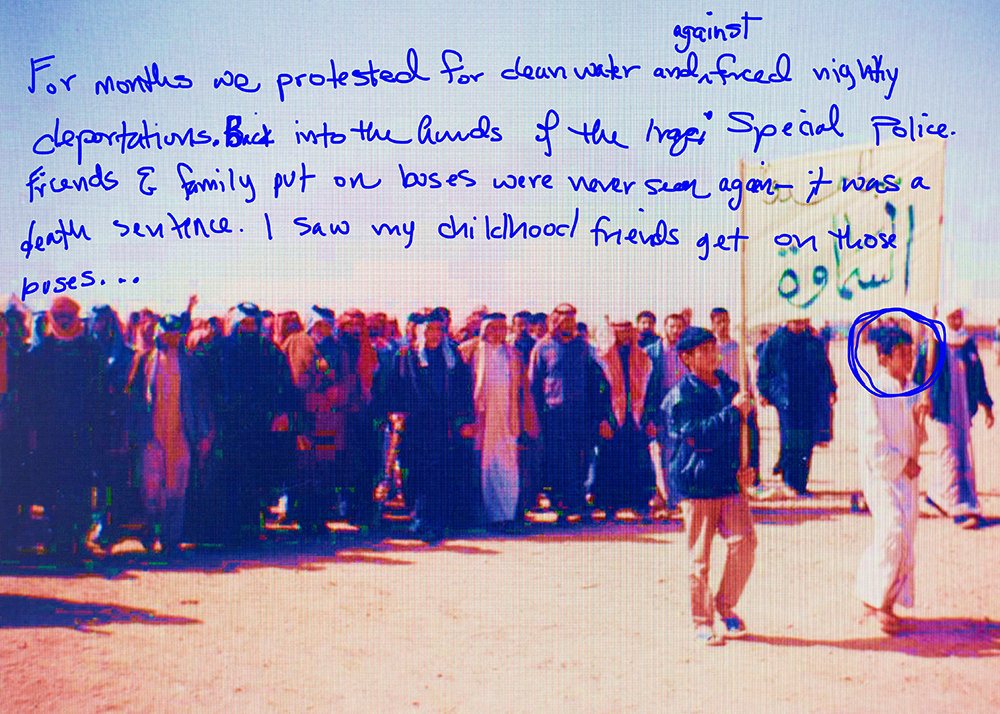 against
For months we protested for clean water and forced nightly
deportations. Back into the hands of the Iraqi Special Police.
Friends & family put on buses were never seen again - it was a
death sentence. I saw my childhood friends get on those
buses...
السماوة